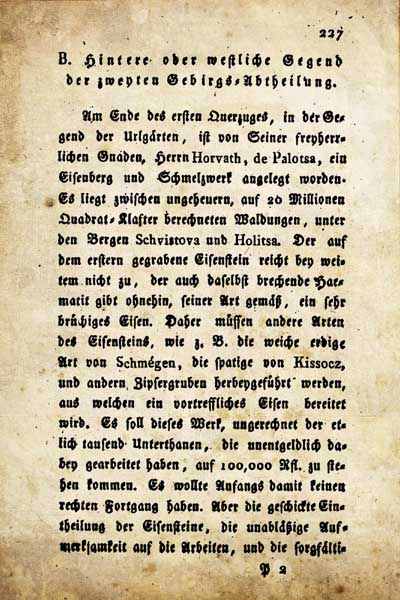 227
B. Hintere oder westliche Gegend
der zweyten Gebirgs-Abtheilung.
Am Ende des ersten Querzuges, in der Ge-
gend der Urlgärten, ist von Seiner freyherr-
lichen Gnaden, Herrn Horvath, de Palotsa, ein
Eisenberg und Schmelzwerk angelegt worden.
Es liegt zwischen ungeheuern, auf 20 Millionen
Quadrat-Klafter berechneten Waldungen, unter
den Bergen Schvistova und Holitsa. Der auf
dem erstern gegrabene Eisenstein reicht bey wei-
tem nicht zu, der auch daselbst brechende Hae-
matit gibt ohnehin, seiner Art gemäß, ein sehr
brüchiges Eisen. Daher müssen andere Arten
des Eisensteins, wie z. B. die weiche erdige
Art von Schmégen, die spatige von Kissocz,
und andern Zipsergruben herbeygeführt werden,
aus welchen ein vortreffliches Eisen bereitet
wird. Es soll dieses Werk, ungerechnet der et-
lich tausend Unterthanen, die unentgeldlich da-
bey gearbeitet haben, auf 100,000 Rfl. zu ste-
hen kommen. Es wollte Anfangs damit keinen
rechten Fortgang haben. Aber die geschickte Ein-
theilung der Eisensteine, die unabläßige Auf-
merksamkeit auf die Arbeiten, und die sorgfälti-
P 2